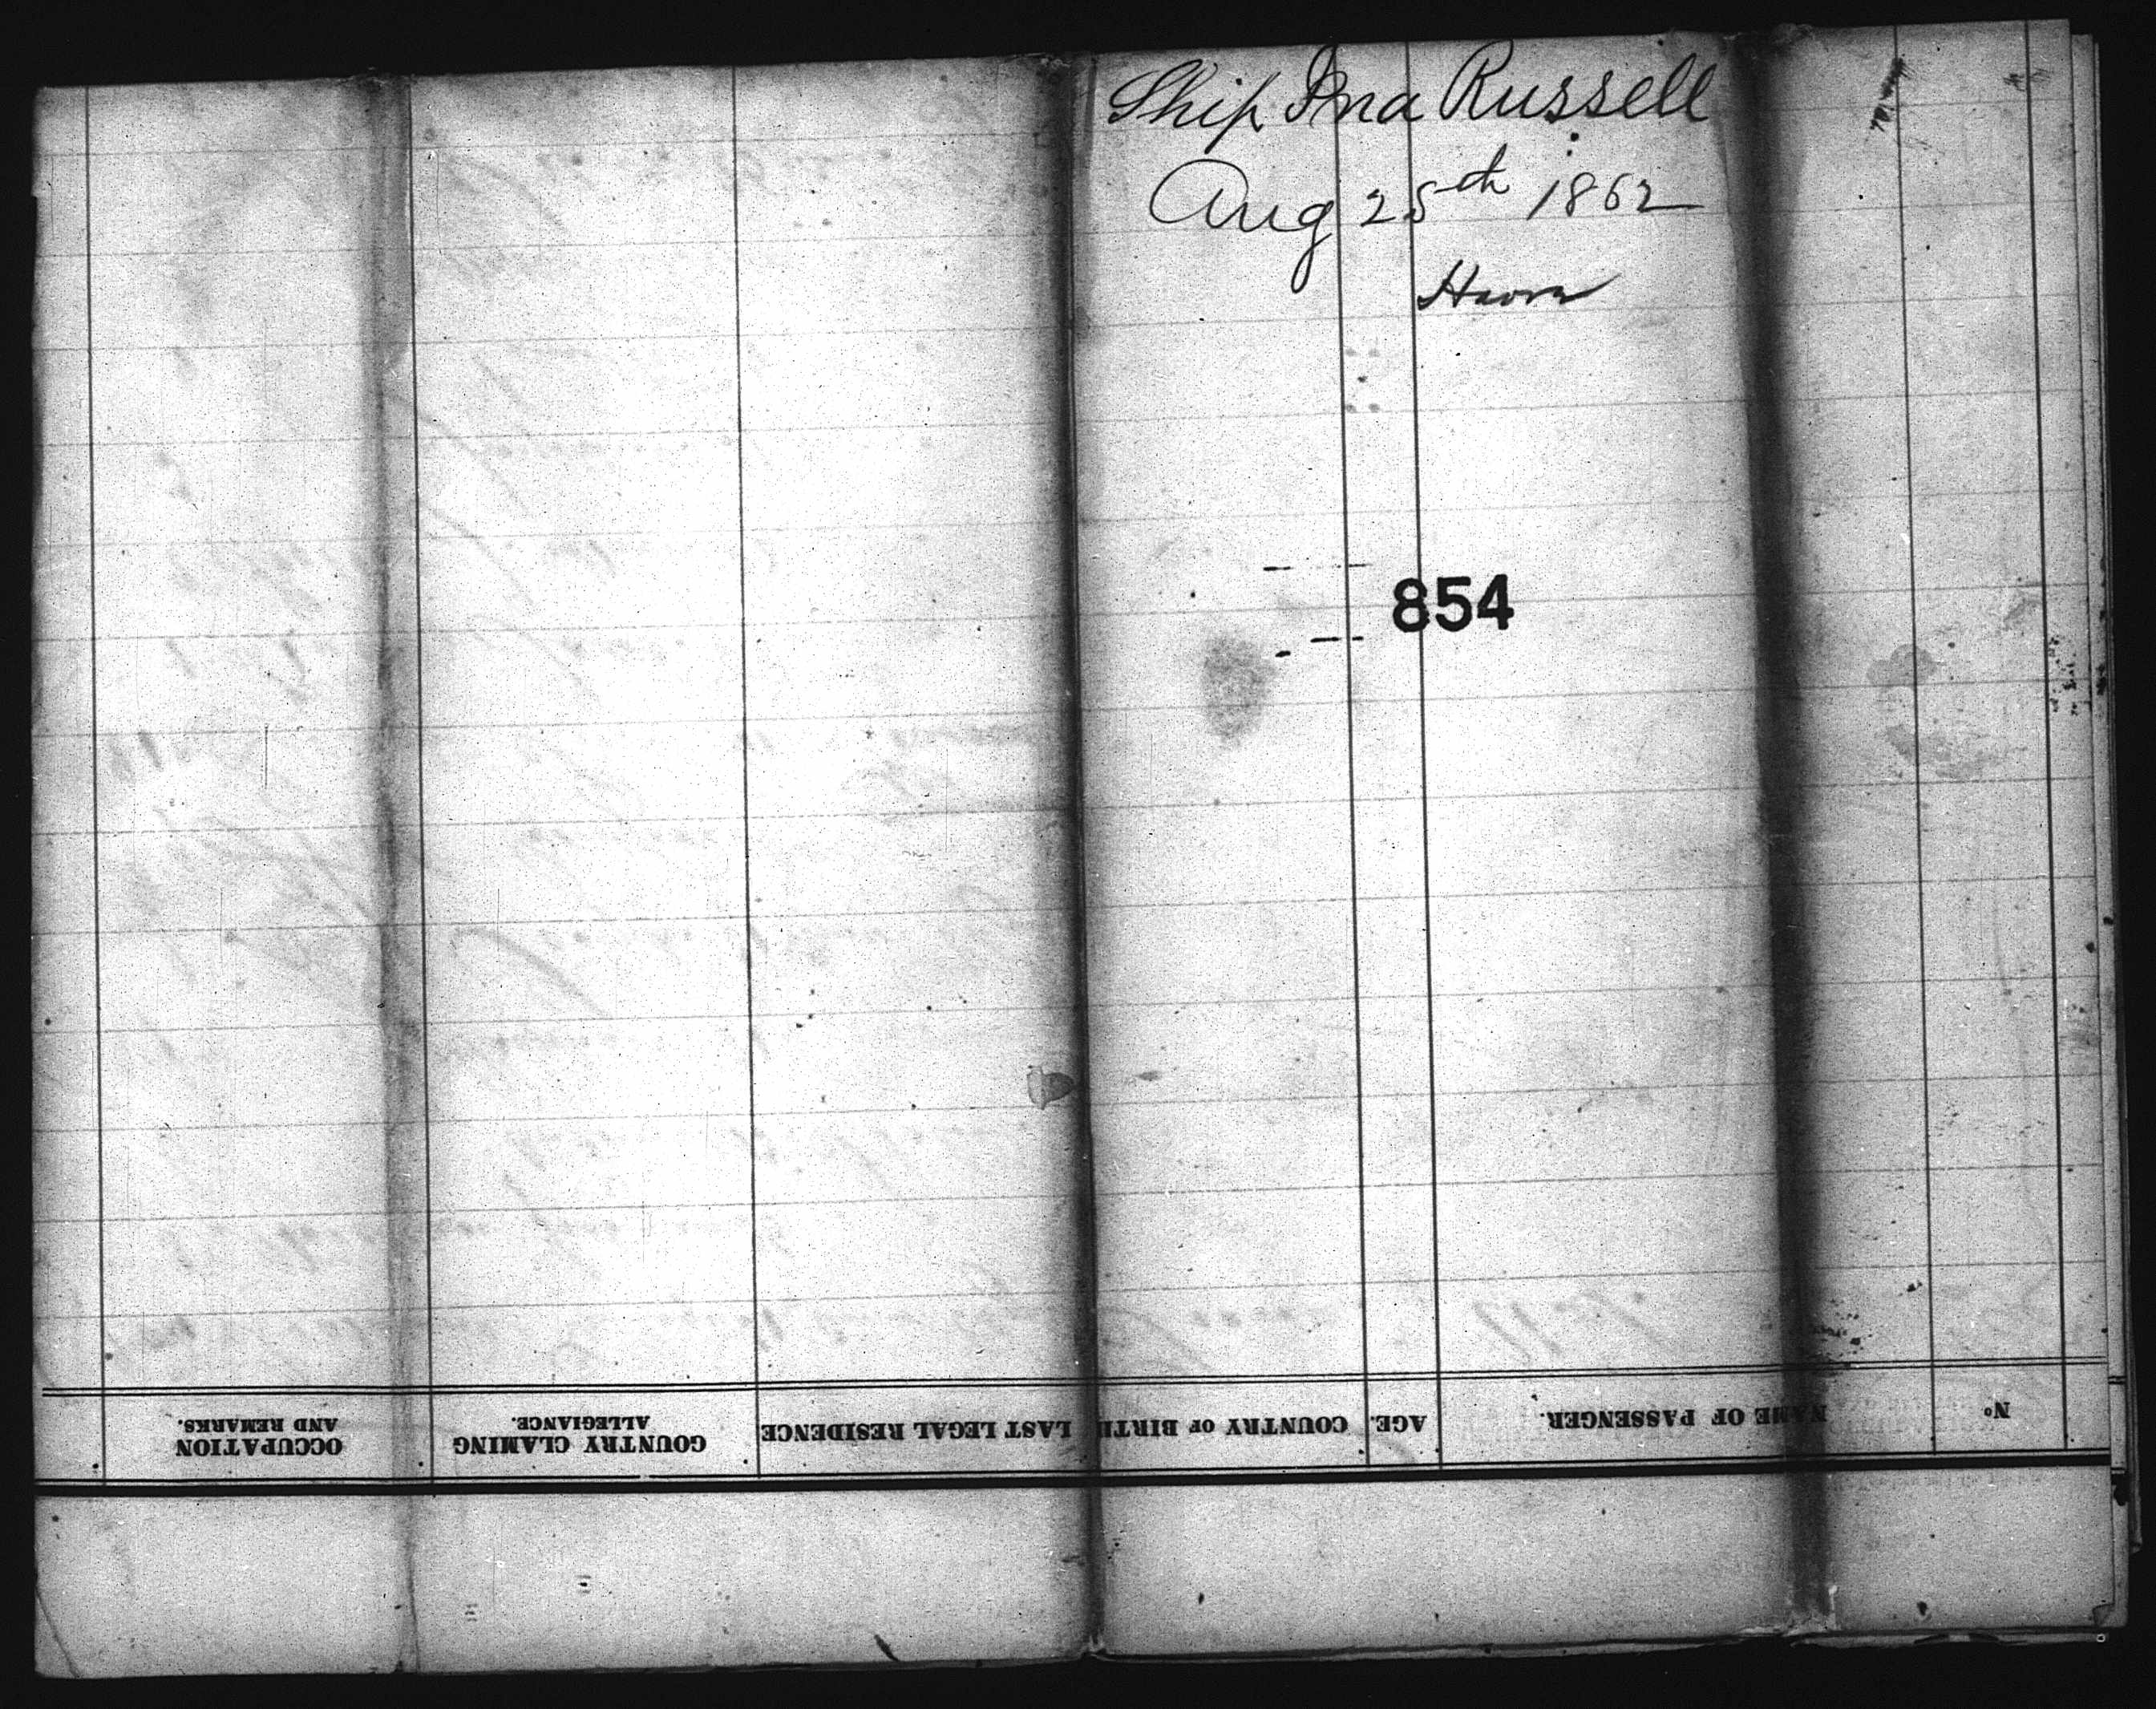 Ship Ina Russell
Aug 25th 1862
854
No
NAME OF PASSENGER.
AGE.
COUNTRY OF BIRTH
LAST LEGAL RESIDENCE
COUNTRY CLAMING
ALLEGIANCE.
OCCUPATION
AND REMARKS.